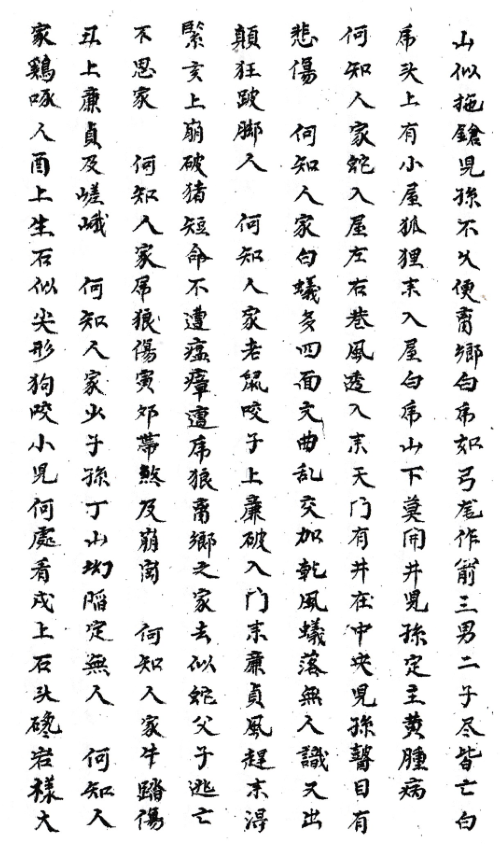 山似拖鎗兒孫不久便离鄉白虎如弓龍作箭三男二子尽皆亡白
虎头上有小屋狐狸來入屋白虎山下莫開井兒孫定主黄腫病
何知人家蛇入屋左右巷風透入來天门有井在中央兒孫瞽目有
悲傷 何知人家白蟻多四面文曲乱交加乾風蟻落無人識又出
顛狂跛脚人 何知人家老鼠咬子上廉破入门來廉貞風趕來淂
緊亥上崩破猪短命不遭瘟瘴遭虎狼离鄉之家去似蛇父子逃亡
不思家 何知人家虎狼傷寅夘帶煞及崩崗 何知人家牛踏傷
丑上廉貞及嵯峨 何知人家少子孫丁山坳陷定無人 何知人
家鷄啄人酉上生石似尖形狗咬小兒何處看戍上石头磪岩樣大